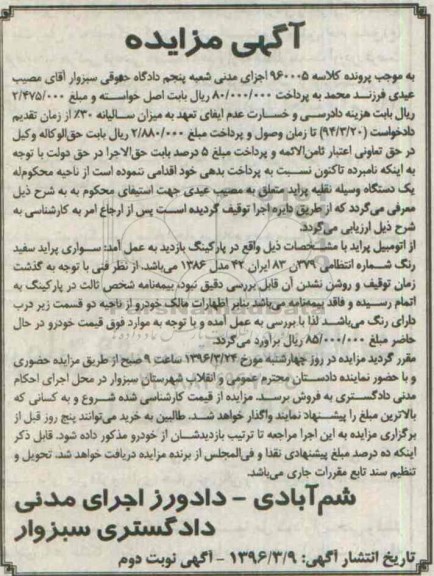 آگهی مزایده
به موجب پرونده کلاسه ۹۶۰۰۰۵ اجرای مدنی شعبه پنجم دادگاه حقوقی سبزوار آقای مصیب
عیدی فرزند محمد به پرداخت ۸۰/۰۰۰/۰۰۰ ریال بابت اصل خواسته و مبلغ ۲/۴۷۵/۰۰۰
ریال بابت هزینه دادرسی و خسارت عدم ایفای تعهد به میزان سالیانه ۳۰٪ از زمان تقدیم
دادخواست (۹۴/۳/۲۰) تا زمان وصول و پرداخت مبلغ ۲/۸۸۰/۰۰۰ ریال بابت حق‌الوکاله وکیل
در حق تعاونی اعتبار ثامن‌الائمه و پرداخت مبلغ ۵ درصد بابت حق‌الاجرا در حق دولت با توجه
به اینکه نامبرده تاکنون نسبت به پرداخت بدهی خود اقدامی ننموده است از ناحیه محکوم‌له
یک دستگاه وسیله نقلیه پراید متعلق به مصیب عیدی جهت استیفای محکوم به به شرح ذیل
معرفی می‌گردد که از طریق دایره اجرا توقیف گردیده است پس از ارجاع امر به کارشناسی به
شرح ذیل ارزیابی می‌گردد.
از اتومبیل پراید با مشخصات ذیل واقع در پارکینگ بازدید به عمل آمد: سواری پراید سفید
رنگ شماره انتظامی ۳۷۹ن ۸۳ ایران ۴۲ مدل ۱۳۸۶ می‌باشد. از نظر فنی با توجه به گذشت
زمان توقیف و روشن نشدن آن قابل بررسی دقیق نبود، بیمه‌نامه شخص ثالث در پارکینگ به
اتمام رسیده و فاقد بیمه‌نامه می‌باشد بنابر اظهارات مالک خودرو از ناحیه دو قسمت زیر درب
دارای رنگ می‌باشد لذا با بررسی به عمل آمده و با توجه به موارد فوق قیمت خودرو در حال
حاضر مبلغ ۸۵/۰۰۰/۰۰۰ ریال برآورد می‌گردد.
مقرر گردید مزایده در روز چهارشنبه مورخ ۱۳۹۶/۳/۲۴ ساعت ۹ صبح از طریق مزایده حضوری
و با حضور نماینده دادستان محترم عمومی و انقلاب شهرستان سبزوار در محل اجرای احکام
مدنی دادگستری به فروش برسد. مزایده از قیمت کارشناسی شده شروع و به کسانی که
بالاترین مبلغ را پیشنهاد نمایند واگذار خواهد شد. طالبین به خرید می‌توانند پنج روز قبل از
برگزاری مزایده به این اجرا مراجعه تا ترتیب بازدیدشان از خودرو مذکور داده شود. قابل ذکر
اینکه ده درصد مبلغ پیشنهادی نقدا و فی‌المجلس از برنده مزایده دریافت خواهد شد. تحویل و
تنظیم سند تابع مقررات جاری می‌باشد.
شم‌آبادی - دادورز اجرای مدنی
دادگستری سبزوار
تاریخ انتشار آگهی: ۱۳۹۶/۳/۹ - آگهی نوبت دوم